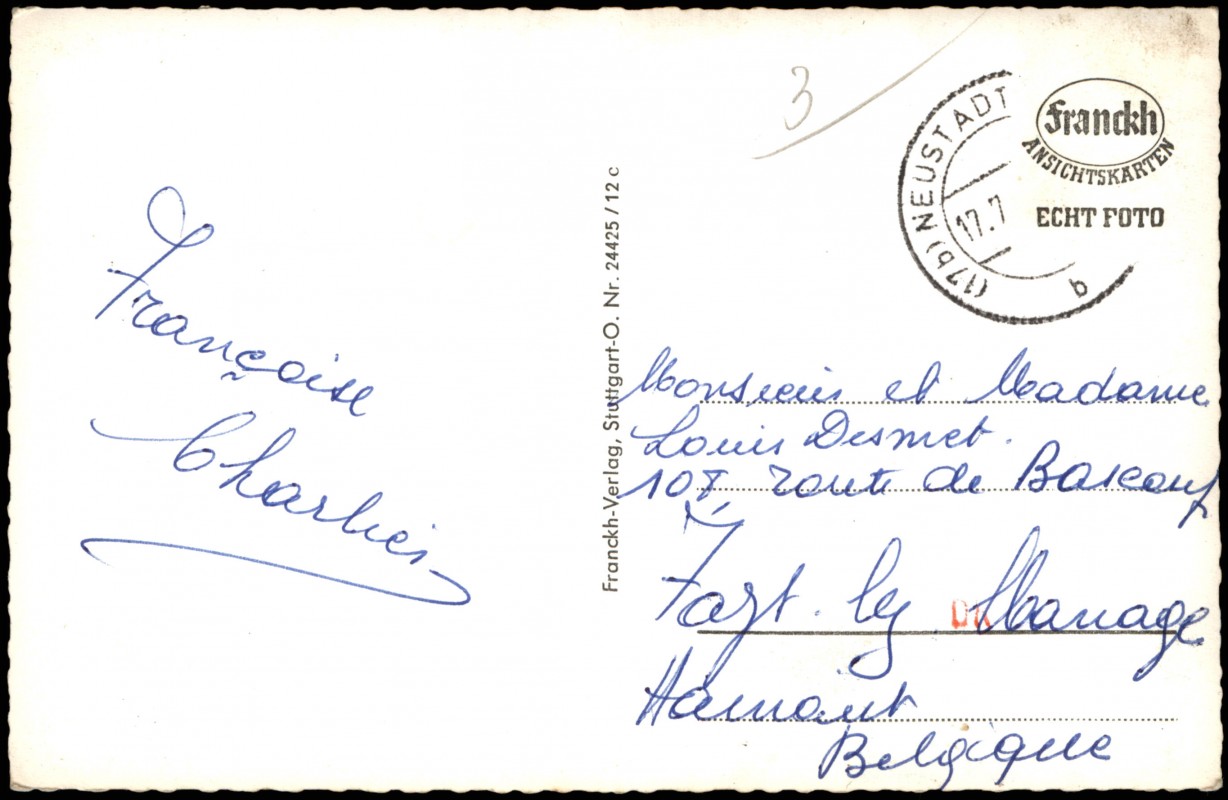 3
(17b) NEUSTADT
17.7
b
Franckh
ANSICHTSKARTEN
ECHT FOTO
Françoise
Charlier
Franckh-Verlag, Stuttgart-O. Nr. 24425/12 c
Monsieur et Madame
Louis Desmet.
107, route de Bascoup
Fayt. lez Manage
Hainaut
Belgique